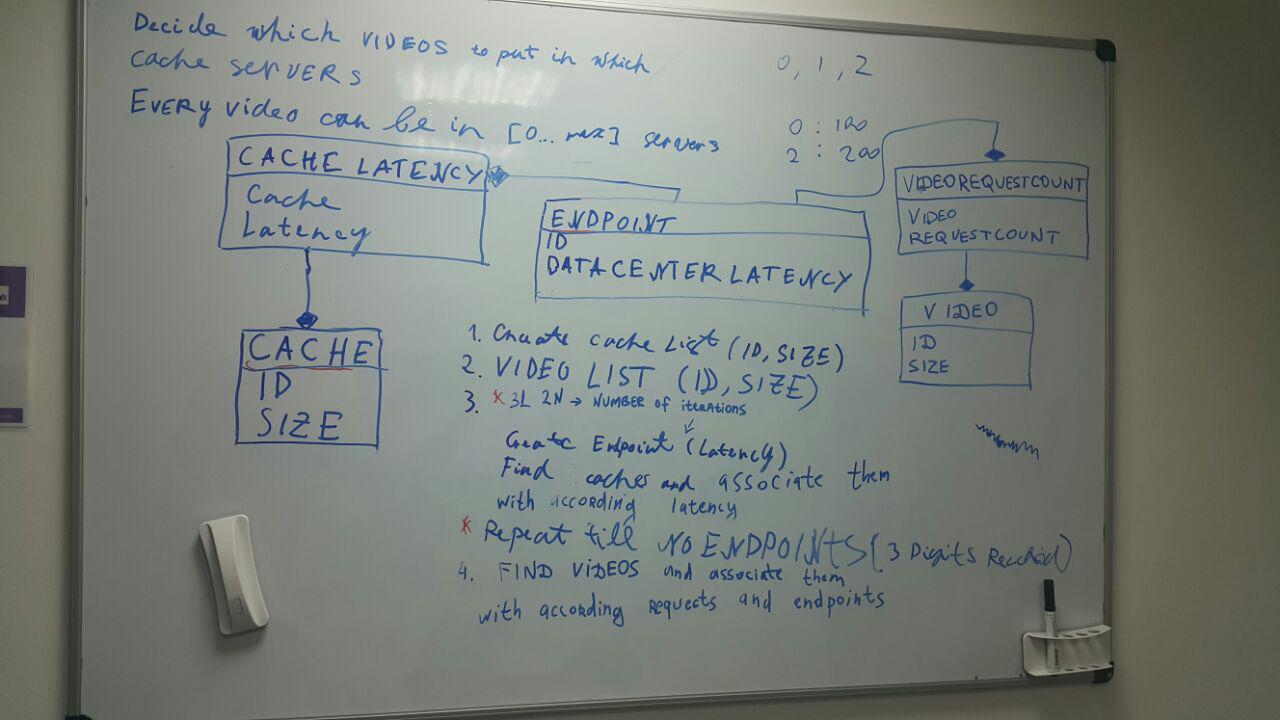 Decide which VIDEOS to put in which
cache SERVERS
EVERY video can be in [0... max] servers
0, 1, 2
0 : 100
2 : 200
CACHE LATENCY
Cache
Latency
ENDPOINT
ID
DATACENTER LATENCY
VIDEOREQUESTCOUNT
VIDEO
REQUESTCOUNT
VIDEO
ID
SIZE
CACHE
ID
SIZE
1. Create cache List (ID, SIZE)
2. VIDEO LIST (ID, SIZE)
3. * 3L 2N → NUMBER of iterations
Create Endpoint (Latency)
Find caches and associate them
with according latency
* Repeat till NO ENDPOINTS (3 Digits Reached)
4. FIND VIDEOS and associate them
with according requests and endpoints